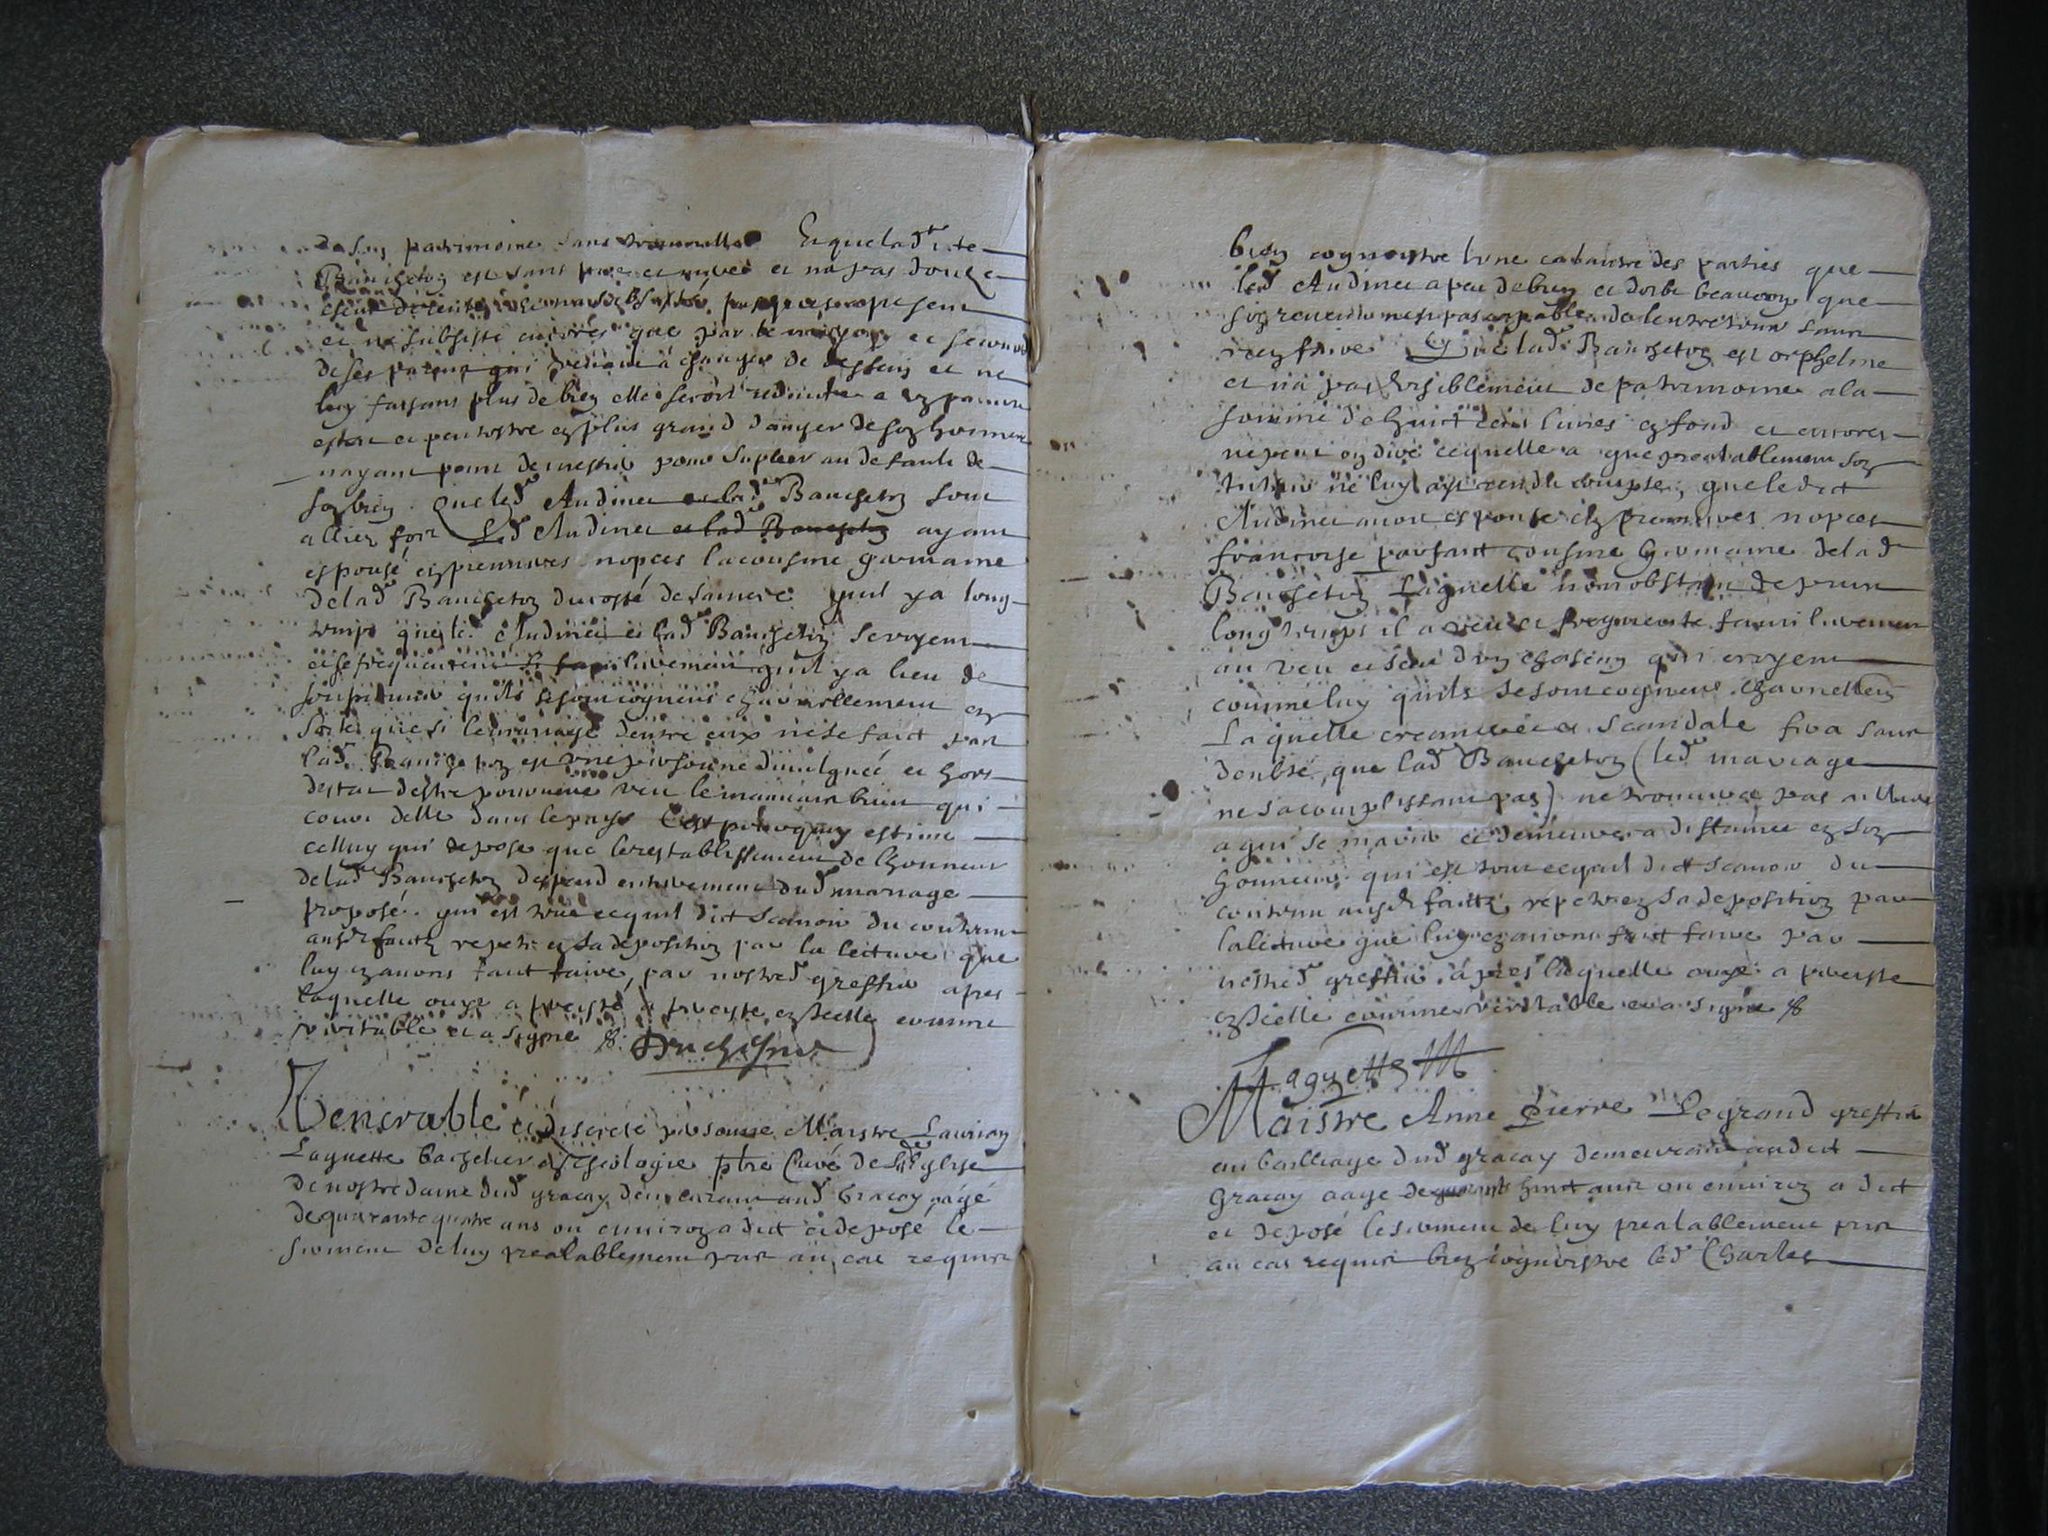 de son patrimoine sans Et que lad
Bauchetog est sans pere et mere et na pas douze
escus de rente
et ne subsiste encores que par le moyen et secours
de ses parens qui venant a changer de dessein et ne
luy faisans plus de bien elle seroit reduitte a ung pauvre
estat et peut estre en plus grand danger de son honneur
nayant point de mestier pour supleer au default de
son bien. Que led Audinet et lad Bauchetog sont
alliez Led Audinet et lad Bauchetog ayant
espousé en premieres nopces la cousine germaine
de lad Bauchetog du costé de sa mere quil y a long
temps que led Audinet et lad Bauchetog se voyent
et se frequentent familierement quil y a lieu de
quils se sont cogneus charnellement en
sorte que si le mariage dentre eux ne se faict pas
lad Bauchetog est une personne divulguée et hors
destat destre pourveue veu le mauvais bruit qui
court delle dans le pays Cest pourquoy estime
celluy qui depose que le restablissement de lhonneur
de lad Bauchetog despend entierement dud mariage
proposé. qui est tout ce quil dict scavoir du contenu
ausd faictz repeté en sa deposition par la lecture que
luy en avons faict faire, par nostred greffier apres
laquelle ouye a percisté et perciste en icelle comme
veritable et a signé
Venerable et discrete personne Maistre
Laguette bachelier en theologie ptre Curé de Leglise
de nostre dame dud gracay demeurant aud Gracay aagé
de quarante quatre ans ou environ a dict et deposé le
serment de luy prealablement pris au cas requis
bien cognoistre lune et lautre des parties que
led Audinet a peu de bien et doibt beaucoup que
son revenu nest pas capable de lentretenir sans
rien faire. Que lad Bauchetog est orpheline
et na pas visiblement de patrimoine a la
somme de huict cens livres en fond et encores
ne peut on dire ce quelle a que prealablement son
tuteur ne luy ayt rendu compte, que ledict
Audinet avoit espousé en premieres nopces
francoise parfaict cousine germaine de lad
Bauchetog Laquelle nonobstant depuis
long temps il a veu et frequenté familierement
au veu et sceu dun chascung qui croyent
comme luy quils se sont cogneus charnellem
Laquelle creance et scandale fera sans
doubte, que lad Bauchetog (led mariage
ne sacomplissant pas) ne trouvera pas ailleurs
a qui se marier et demeurera diffamee en son
honneur. qui est tout ce quil dict scavoir du
contenu ausd faictz, repeté en sa deposition par
la lecture que luy en avons faict faire par
nostred greffier. apres laquelle ouye a perciste
en icelle comme veritable et a signé
Laguette
Maistre Anne Pierre Legrand greffier
au bailliage dud gracay demeurant audict
Gracay aagé de quarante huict ans ou environ a dict
et deposé le serment de luy prealablement pris
au cas requis bien cognoistre led Charles